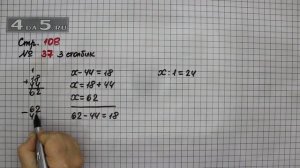 4DA5.RU
Стр. 108
№ 37 3 столбик
1
+ 18
44
62
x - 44 = 18
x = 18 + 44
x = 62
62 - 44 = 18
x : 1 = 24
- 62